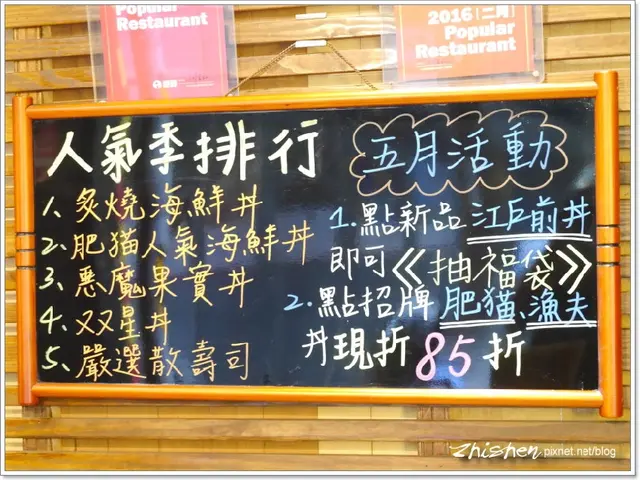 Popular
Restaurant
2016「二周」
Popular
Restaurant
人氣季排行
1、炙燒海鮮丼
2、肥猫人氣海鮮丼
3、惡魔果實丼
4、双星丼
5、嚴選散壽司
五月活動
1.點新品 江戶前丼
即可《抽福袋》
2.點招牌 肥猫、漁夫
丼現折85折
Zhishen.pixnet.net/blog